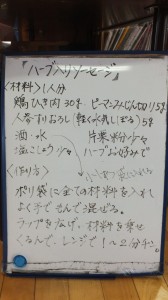 『ハーブ入りソーセージ』
〈材料〉1人分
鶏ひき肉 30g ピーマンみじん切り 5g
人参すりおろし(軽く水気しぼる) 5g
酒・水 片栗粉 少々
塩こしょう 少々 ハーブお好みで
〈作り方〉
ポリ袋に全ての材料を入れ
よく手でもんで混ぜる。
ラップを広げ、材料を乗せ
くるんで、レンジで1〜2分チン。